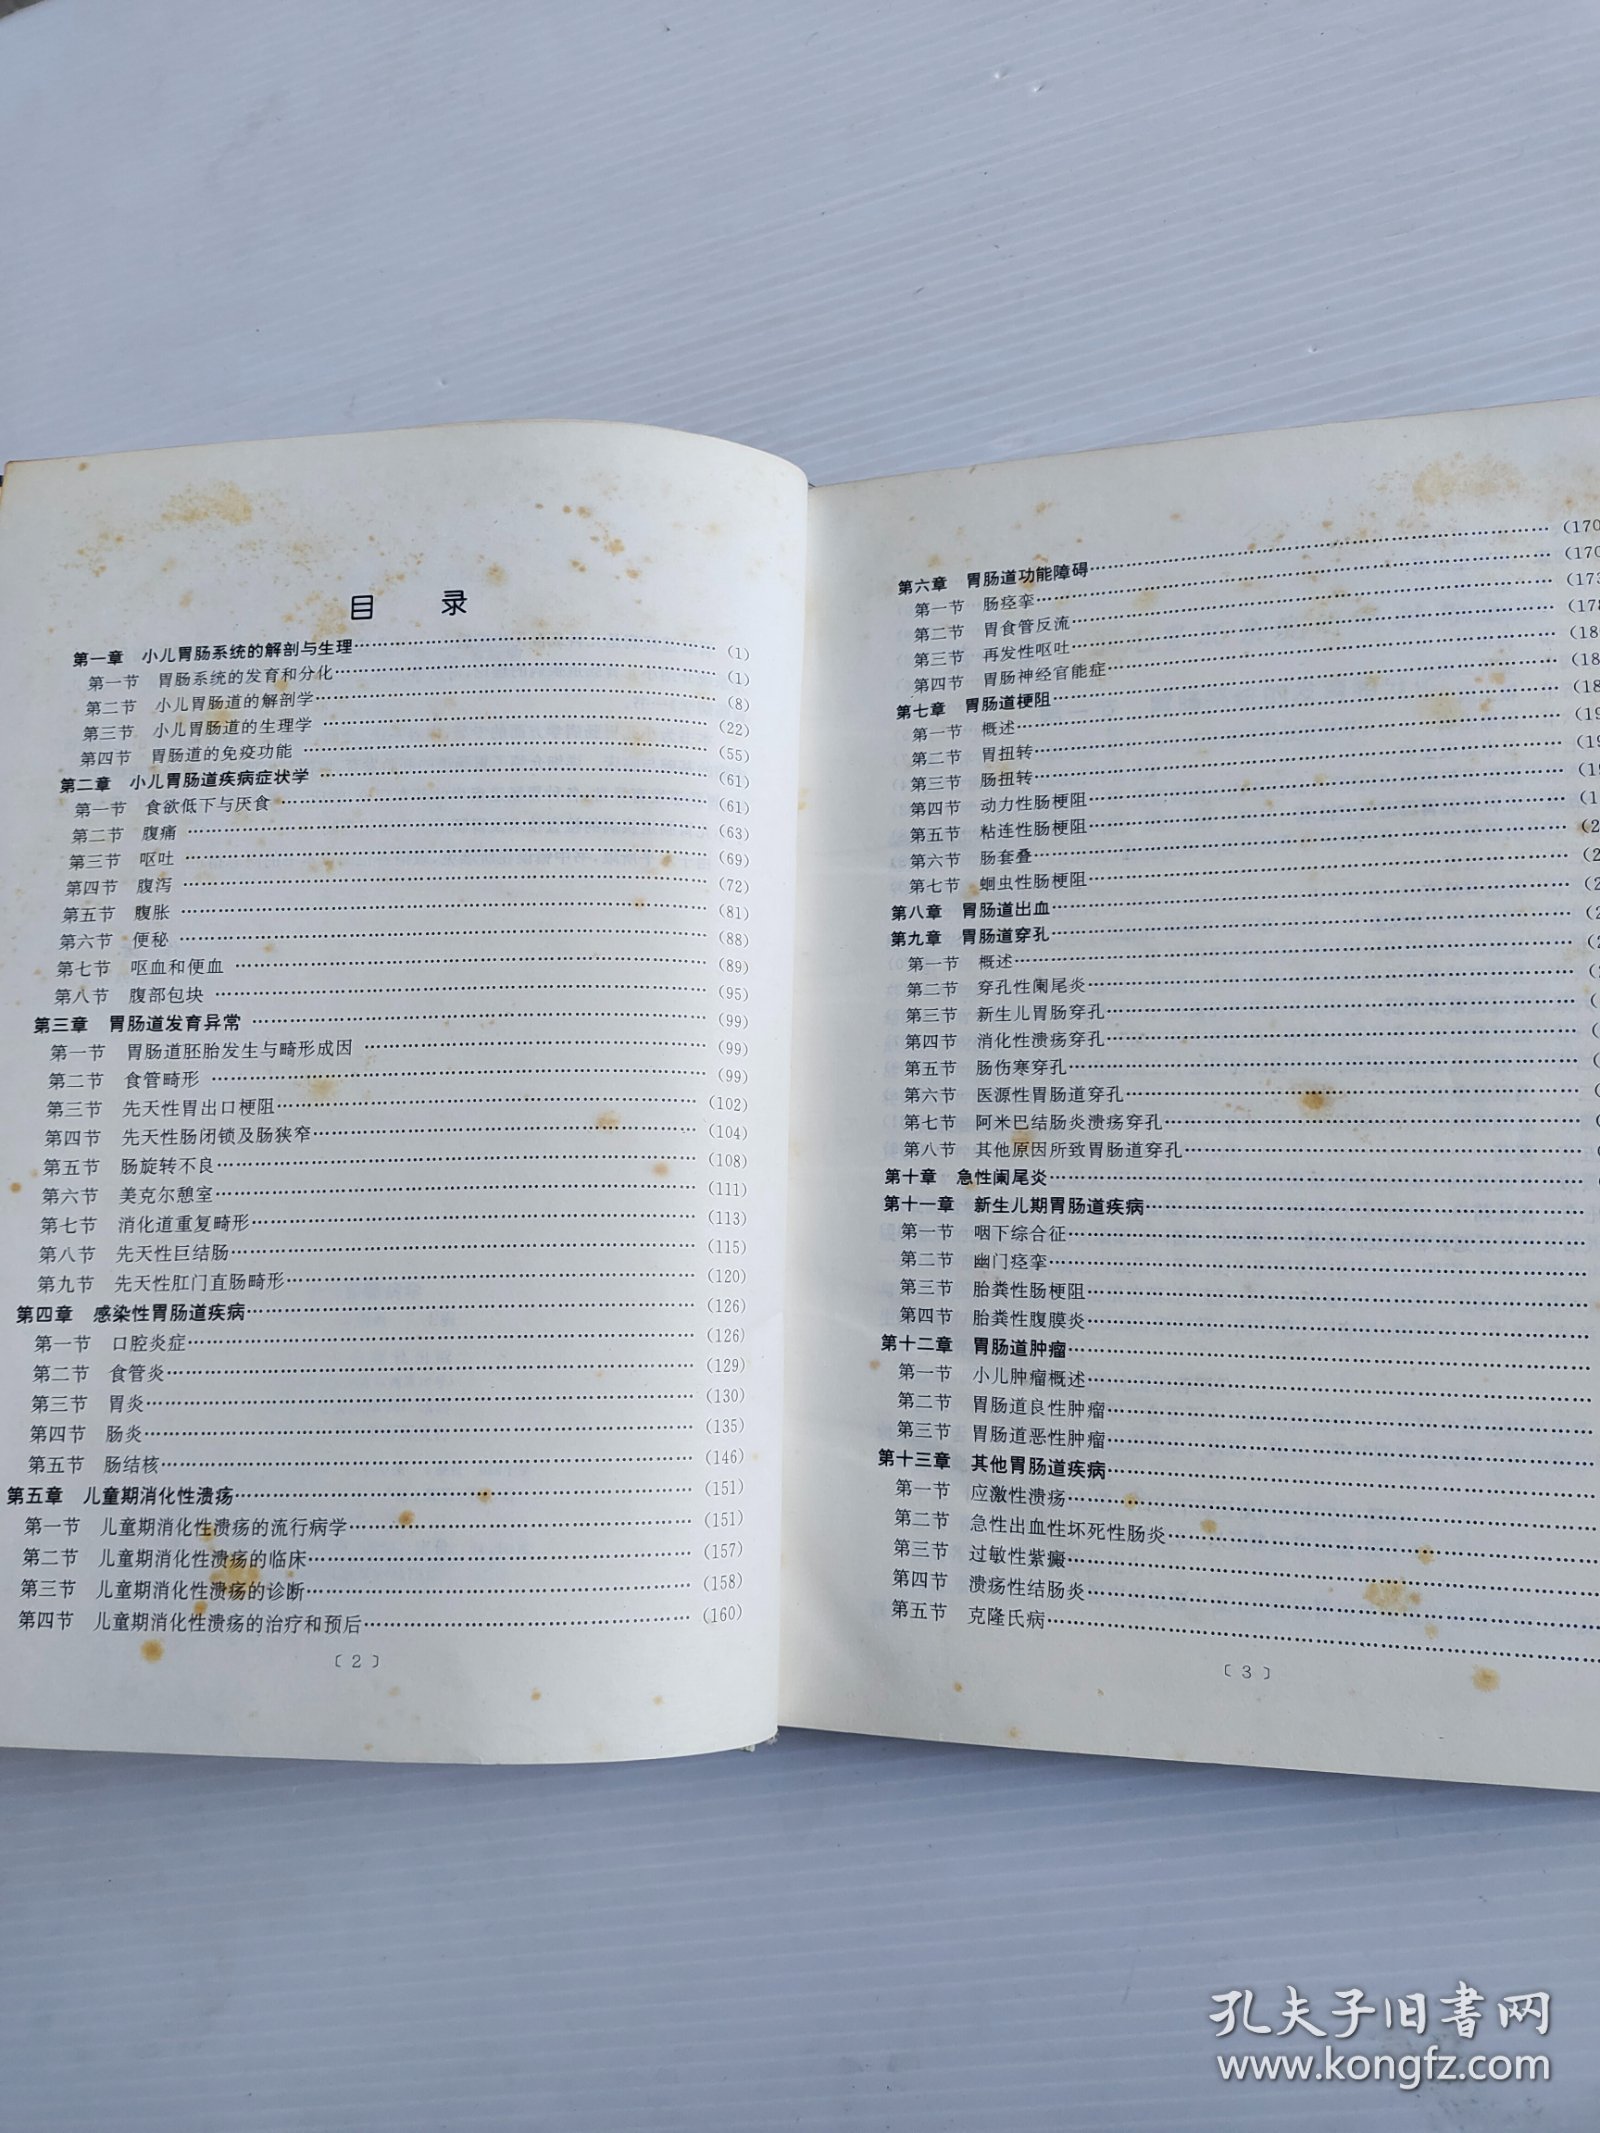 目 录
第一章 小儿胃肠系统的解剖与生理……(1)
第一节 胃肠系统的发育和分化……(1)
第二节 小儿胃肠道的解剖学……(8)
第三节 小儿胃肠道的生理学……(22)
第四节 胃肠道的免疫功能……(55)
第二章 小儿胃肠道疾病症状学……(61)
第一节 食欲低下与厌食……(61)
第二节 腹痛……(63)
第三节 呕吐……(69)
第四节 腹泻……(72)
第五节 腹胀……(81)
第六节 便秘……(88)
第七节 呕血和便血……(89)
第八节 腹部包块……(95)
第三章 胃肠道发育异常……(99)
第一节 胃肠道胚胎发生与畸形成因……(99)
第二节 食管畸形……(99)
第三节 先天性胃出口梗阻……(102)
第四节 先天性肠闭锁及肠狭窄……(104)
第五节 肠旋转不良……(108)
第六节 美克尔憩室……(111)
第七节 消化道重复畸形……(113)
第八节 先天性巨结肠……(115)
第九节 先天性肛门直肠畸形……(120)
第四章 感染性胃肠道疾病……(126)
第一节 口腔炎症……(126)
第二节 食管炎……(129)
第三节 胃炎……(130)
第四节 肠炎……(135)
第五节 肠结核……(146)
第五章 儿童期消化性溃疡……(151)
第一节 儿童期消化性溃疡的流行病学……(151)
第二节 儿童期消化性溃疡的临床……(157)
第三节 儿童期消化性溃疡的诊断……(158)
第四节 儿童期消化性溃疡的治疗和预后……(160)
〔2〕
第六章 胃肠道功能障碍……(170
第一节 肠痉挛……(170
第二节 胃食管反流……(173
第三节 再发性呕吐……(178
第四节 胃肠神经官能症……(18
第七章 胃肠道梗阻……(18
第一节 概述……(18
第二节 胃扭转……(19
第三节 肠扭转……(19
第四节 动力性肠梗阻……(19
第五节 粘连性肠梗阻……(1
第六节 肠套叠……(2
第七节 蛔虫性肠梗阻……(2
第八章 胃肠道出血……(2
第九章 胃肠道穿孔……(2
第一节 概述……(2
第二节 穿孔性阑尾炎……
第三节 新生儿胃肠穿孔……
第四节 消化性溃疡穿孔……
第五节 肠伤寒穿孔……
第六节 医源性胃肠道穿孔……
第七节 阿米巴结肠炎溃疡穿孔……
第八节 其他原因所致胃肠道穿孔……
第十章 急性阑尾炎……
第十一章 新生儿期胃肠道疾病……
第一节 咽下综合征……
第二节 幽门痉挛……
第三节 胎粪性肠梗阻……
第四节 胎粪性腹膜炎……
第十二章 胃肠道肿瘤……
第一节 小儿肿瘤概述……
第二节 胃肠道良性肿瘤……
第三节 胃肠道恶性肿瘤……
第十三章 其他胃肠道疾病……
第一节 应激性溃疡……
第二节 急性出血性坏死性肠炎……
第三节 过敏性紫癜……
第四节 溃疡性结肠炎……
第五节 克隆氏病……
〔3〕
孔夫子旧书网
www.kongfz.com